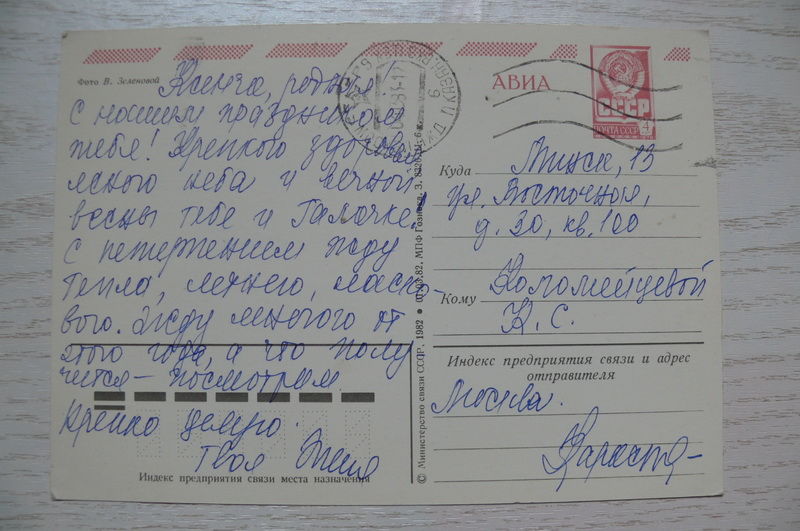 Фото В. Зеленовой
АВИА
СССР
ПОЧТА СССР
4
Ксюча, родная
с нашим праздником
тебя! Крепкого здоровья
ясного неба и вечной
весны тебе и Галочке.
С нетерпением жду
тепла, летнего, ласко-
вого. Жду многого от
этого года, а что полу
чится – посмотрим.
Крепко целую.
Твоя
Индекс предприятия связи места назначения
© Министерство связи СССР, 1982 ● МПФ Гознака, З.
Куда Минск, 13
ул. Восточная,
д. 30, кв. 100
Кому Коломейцевой
К. С.
Индекс предприятия связи и адрес
отправителя
Москва.